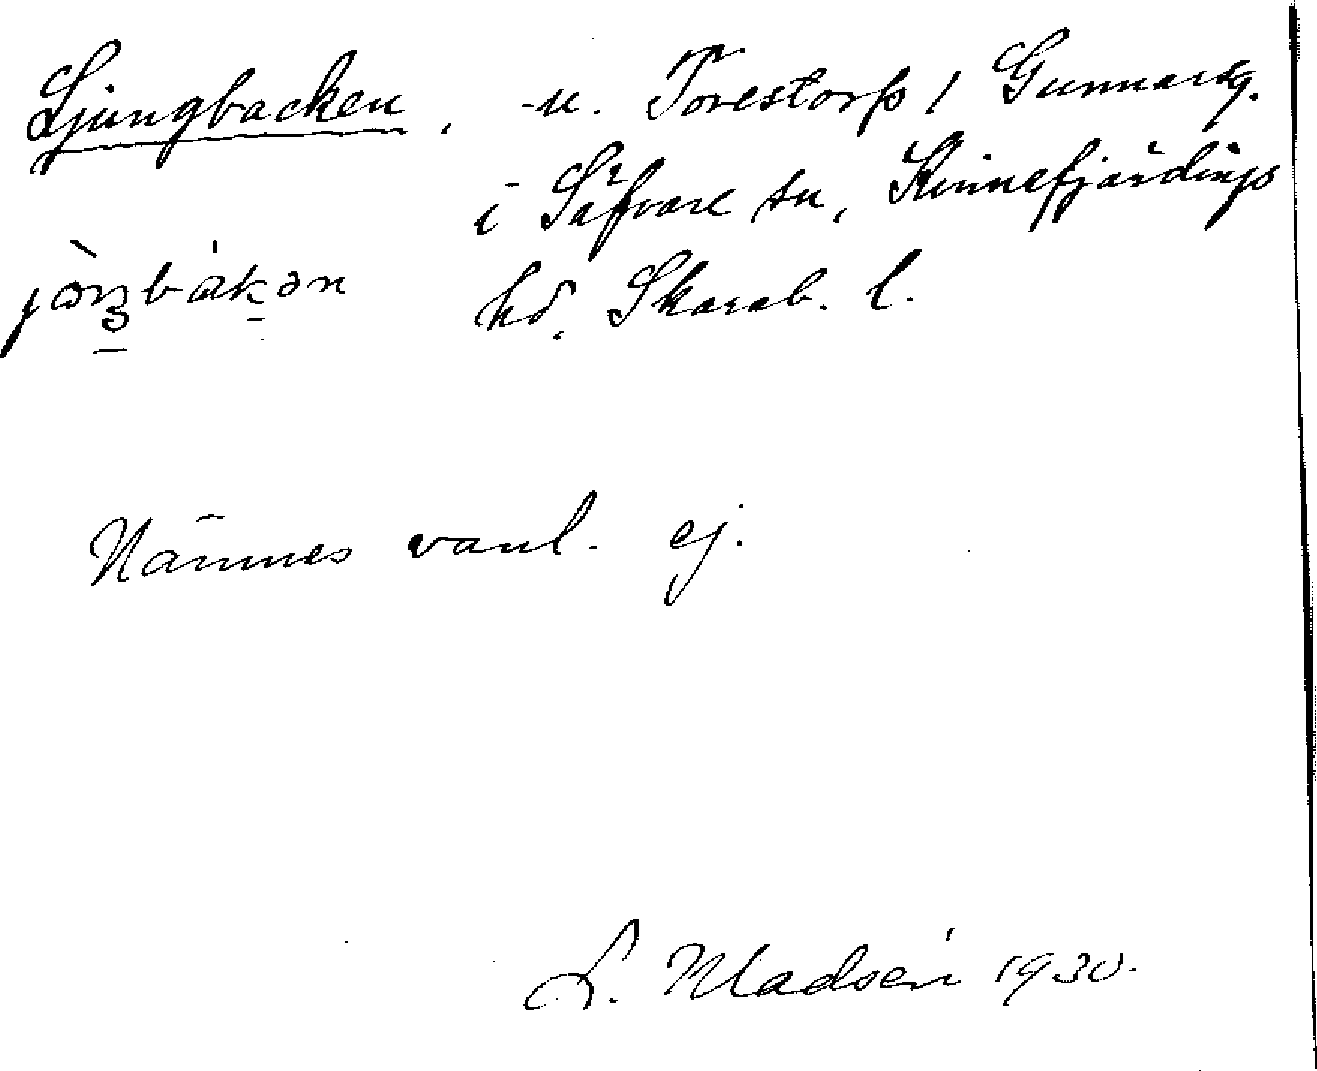 Ljungbacken, -u. Torestorp / Gunnarsg.
i Säfvare sn, Kinnefjärdings
hd. Skarab. l.
Nämnes vanl. ej.
L. Madsén 1930.